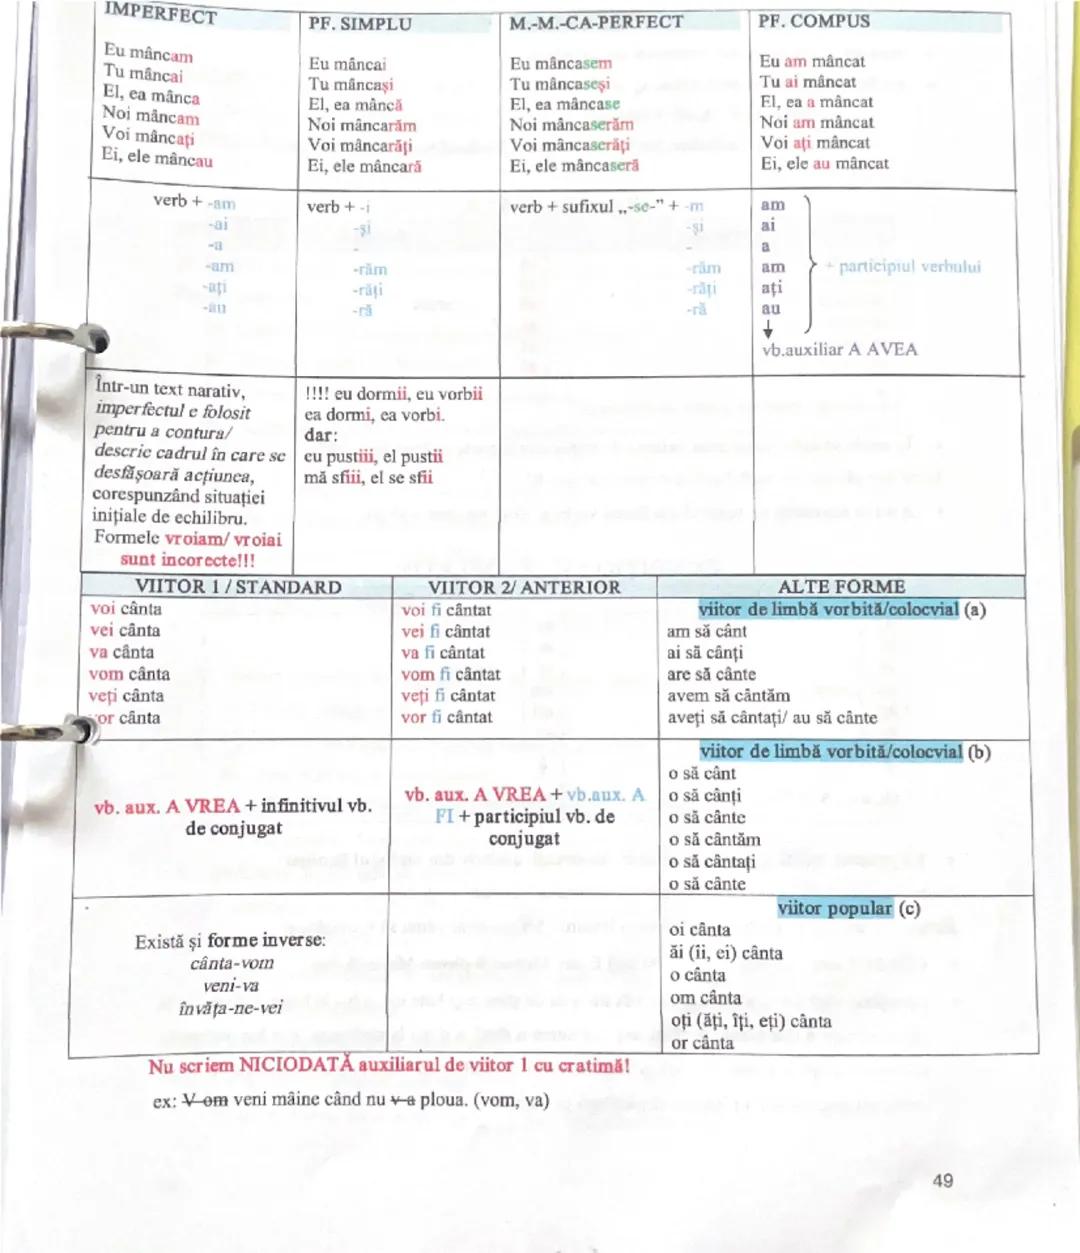 IMPERFECT
Eu mâncam
Tu mâncai
El, ea mânca
Noi mâncam
Voi mâncați
Ei, ele mâncau
PF. SIMPLU
Eu mâncai
Tu mâncași
El, ea mâncă
Noi mâncarăm
Voi mâncarăți
Ei, ele mâncară
M.-M.-CA-PERFECT
Eu mâncasem
Tu mâncaseși
El, ea mâncase
Noi mâncaserăm
Voi mâncaserăți
Ei, ele mâncaseră
PF. COMPUS
Eu am mâncat
Tu ai mâncat
El, ea a mâncat
Noi am mâncat
Voi ați mâncat
Ei, ele au mâncat
verb + -am
-ai
-a
-am
-ați
-au
verb + -i
-și
-
-răm
-răți
-ră
verb + sufixul „-se-” + -m
-și
-
-răm
-răți
-ră
am
ai
a
am + participiul verbului
ați
au
vb.auxiliar A AVEA
Într-un text narativ,
imperfectul e folosit
pentru a contura/
descrie cadrul în care se
desfășoară acțiunea,
corespunzând situației
inițiale de echilibru.
Formele vroiam/ vroiai
sunt incorecte!!!
!!!! eu dormii, eu vorbii
ea dormi, ea vorbi.
dar:
eu pustiii, el pustii
mă sfiii, el se sfii
VIITOR 1 / STANDARD
voi cânta
vei cânta
va cânta
vom cânta
veți cânta
vor cânta
VIITOR 2/ ANTERIOR
voi fi cântat
vei fi cântat
va fi cântat
vom fi cântat
veți fi cântat
vor fi cântat
ALTE FORME
viitor de limbă vorbită/colocvial (a)
am să cânt
ai să cânți
are să cânte
avem să cântăm
aveți să cântați/ au să cânte
vb. aux. A VREA + infinitivul vb.
de conjugat
vb. aux. A VREA + vb.aux. A
FI + participiul vb. de
conjugat
viitor de limbă vorbită/colocvial (b)
o să cânt
o să cânți
o să cânte
o să cântăm
o să cântați
o să cânte
Există și forme inverse:
cânta-vom
veni-va
învăța-ne-vei
viitor popular (c)
oi cânta
ăi (îi, ei) cânta
o cânta
om cânta
oți (ăți, îți, eți) cânta
or cânta
Nu scriem NICIODATĂ auxiliarul de viitor 1 cu cratimă!
ex: V-om veni mâine când nu v-a ploua. (vom, va)
49